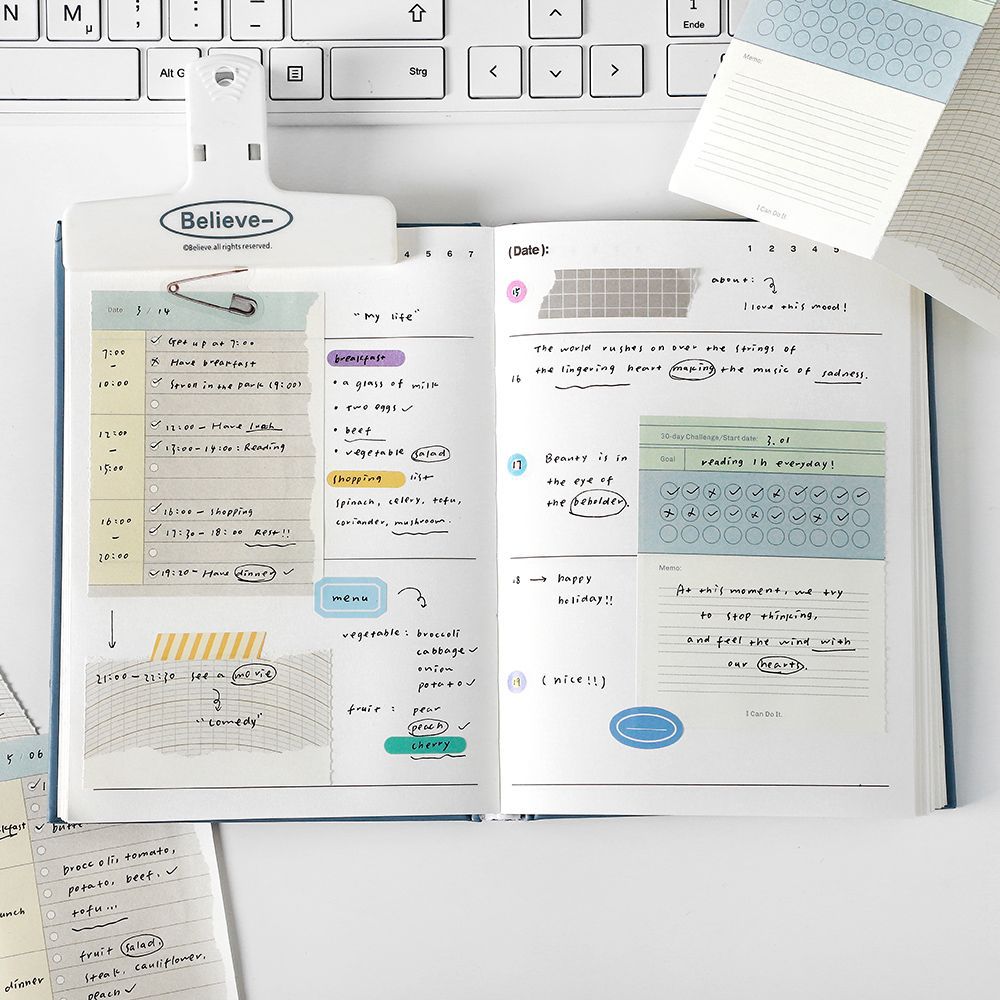 N
M
µ
;
,
:
.
-
_
⇧
1
Ende
Alt Gr
Strg
Memo:
I Can Do It.
Believe-
©Believe.all rights reserved.
4 5 6 7
Date 3 / 14
7:00
-
10:00
12:00
-
15:00
16:00
-
20:00
Get up at 7:00
Have breakfast
Stroll in the park (9:00)
12:00 - Have lunch
13:00-14:00: Reading
16:00 - Shopping
17:30 - 18:00 Rest!!
19:20 - Have dinner
21:00-22:30 see a movie
"comedy"
"My life"
breakfast
• a glass of milk
• two eggs
• beef
• vegetable salad
shopping list
spinach, celery, tofu,
coriander, mushroom.
menu
vegetable: broccoli
cabbage
onion
potato
fruit: pear
peach
cherry
(Date):
1 2 3 4 5
15
about:
I love this mood!
The world rushes on over the strings of
16 the lingering heart making the music of sadness.
17 Beauty is in
the eye of
the beholder.
18 → happy
holiday!!
19 (nice!!)
30-day Challenge/Start date: 3.01
Goal reading 1h everyday!
Memo:
At this moment, we try
to stop thinking,
and feel the wind with
our hearts.
I Can Do It.
5 / 06
broccoli, tomato,
potato, beef.
tofu...
fruit salad.
dinner steak, cauliflower,
peach